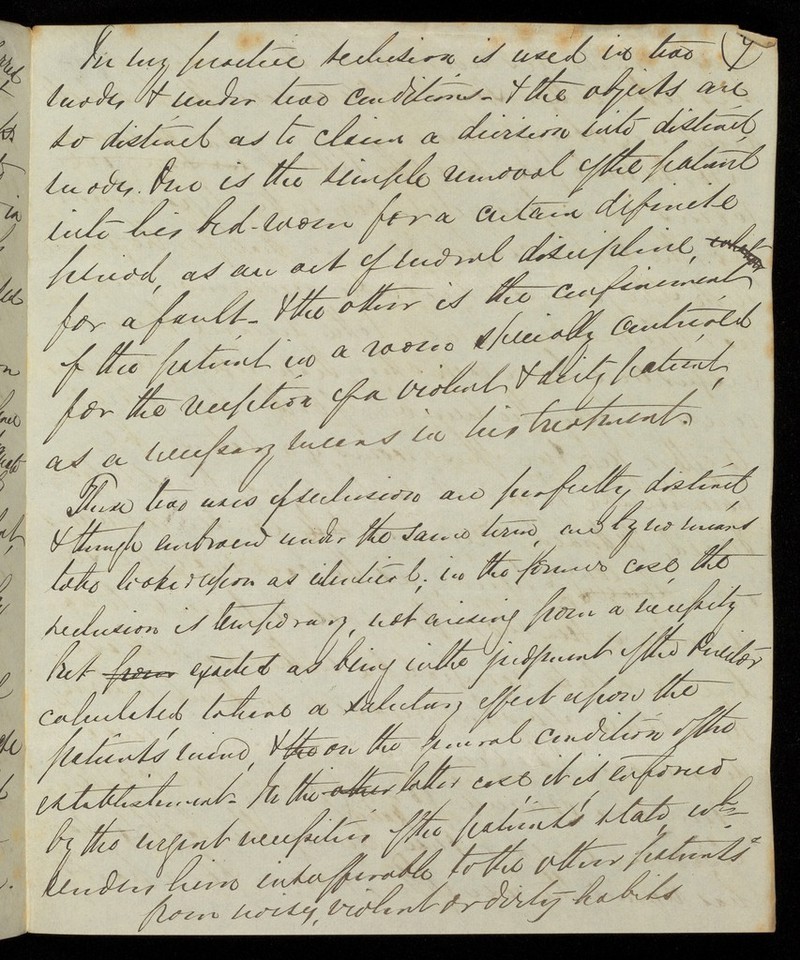 In my practice seclusion is used in two
modes & under two conditions - & the objects are
so distinct as to claim a division into distinct
modes. One is the simple removal of the patient
into his bed-room for a certain difinite
period, as an act of moral discipline,
for a fault - & the other is the confinement
of the patient in a room specially contrived
for the reception of a violent & dirty patient,
as a necessary means in his treatment.
These two uses of seclusion are perfectly distinct
& though embraced under the same term, are by no means
to be looked upon as identical; in the former case the
seclusion is temporary, not arising from a necessity
but from exacted as being in the judgment of the Director
calculated to have a salutary effect upon the
patient's mind, & the on the general condition of the
establishment - In the other latter case it is enforced
by the urgent necessities of the patient's state wh:
renders him insufferable to the other patients
from noisy, violent or dirty habits